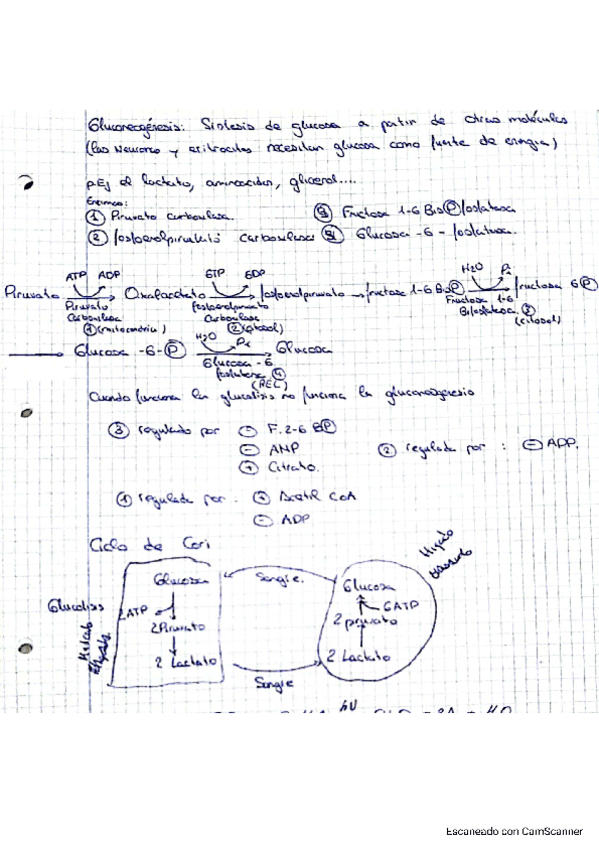 Gluconeogénesis: Síntesis de glucosa a partir de otras moléculas
(las Neuronas y eritrocitos necesitan glucosa como fuente de energía)
p.Ej el lactato, aminoacidos, glicerol....
Enzimas:
① Piruvato carboxilasa. ③ Fructosa 1-6 Bis Ⓟ fosfatasa
② fosfoenolpiruvato carboxilasa ④ Glucosa -6- fosfatasa.
ATP ADP GTP GDP H2O Pi
Piruvato → Oxalacetato → fosfoenolpiruvato → fructosa 1-6 Bis Ⓟ → fructosa 6 Ⓟ
Piruvato Carboxilasa ① (mitocondria)
fosfoenolpiruvato Carboxilasa ② (citosol)
Fructosa 1-6 Bifosfatasa ③ (citosol)
→ Glucosa -6- Ⓟ H2O Pi → Glucosa
Glucosa -6 fosfatasa ④ (REL)
Cuando funciona la glucolisis no funciona la gluconeogénesis
③ regulado por ⊖ F. 2-6 B Ⓟ
⊖ AMP ② regulada por : ⊖ ADP.
⊕ Citrato.
① regulada por. ⊕ Acetil CoA
⊖ ADP
Ciclo de Cori
Hígado
Glucosa Sangre. Glucosa
Glucolisis 2ATP 6ATP
2 Piruvato 2 piruvato
2 Lactato 2 Lactato
Sangre
Escaneado con CamScanner